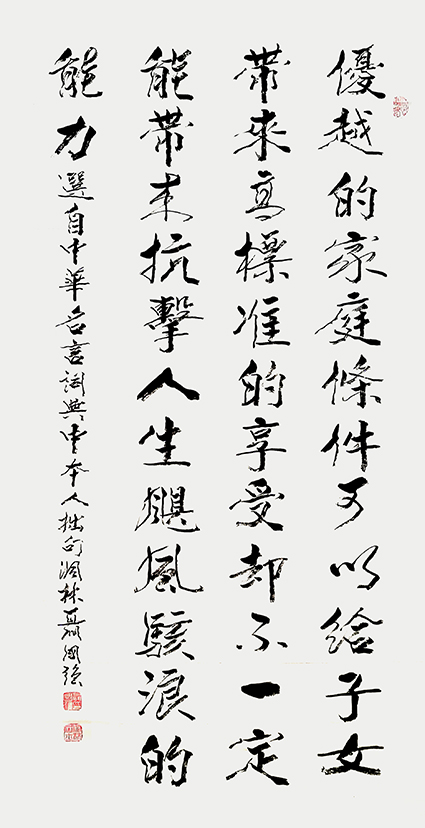 優越的家庭條件可以給子女
帶來高標准的享受却不一定
能帶來抗擊人生颶風駭浪的
能力 選自中華名言詞典中本人拙句 聶國強